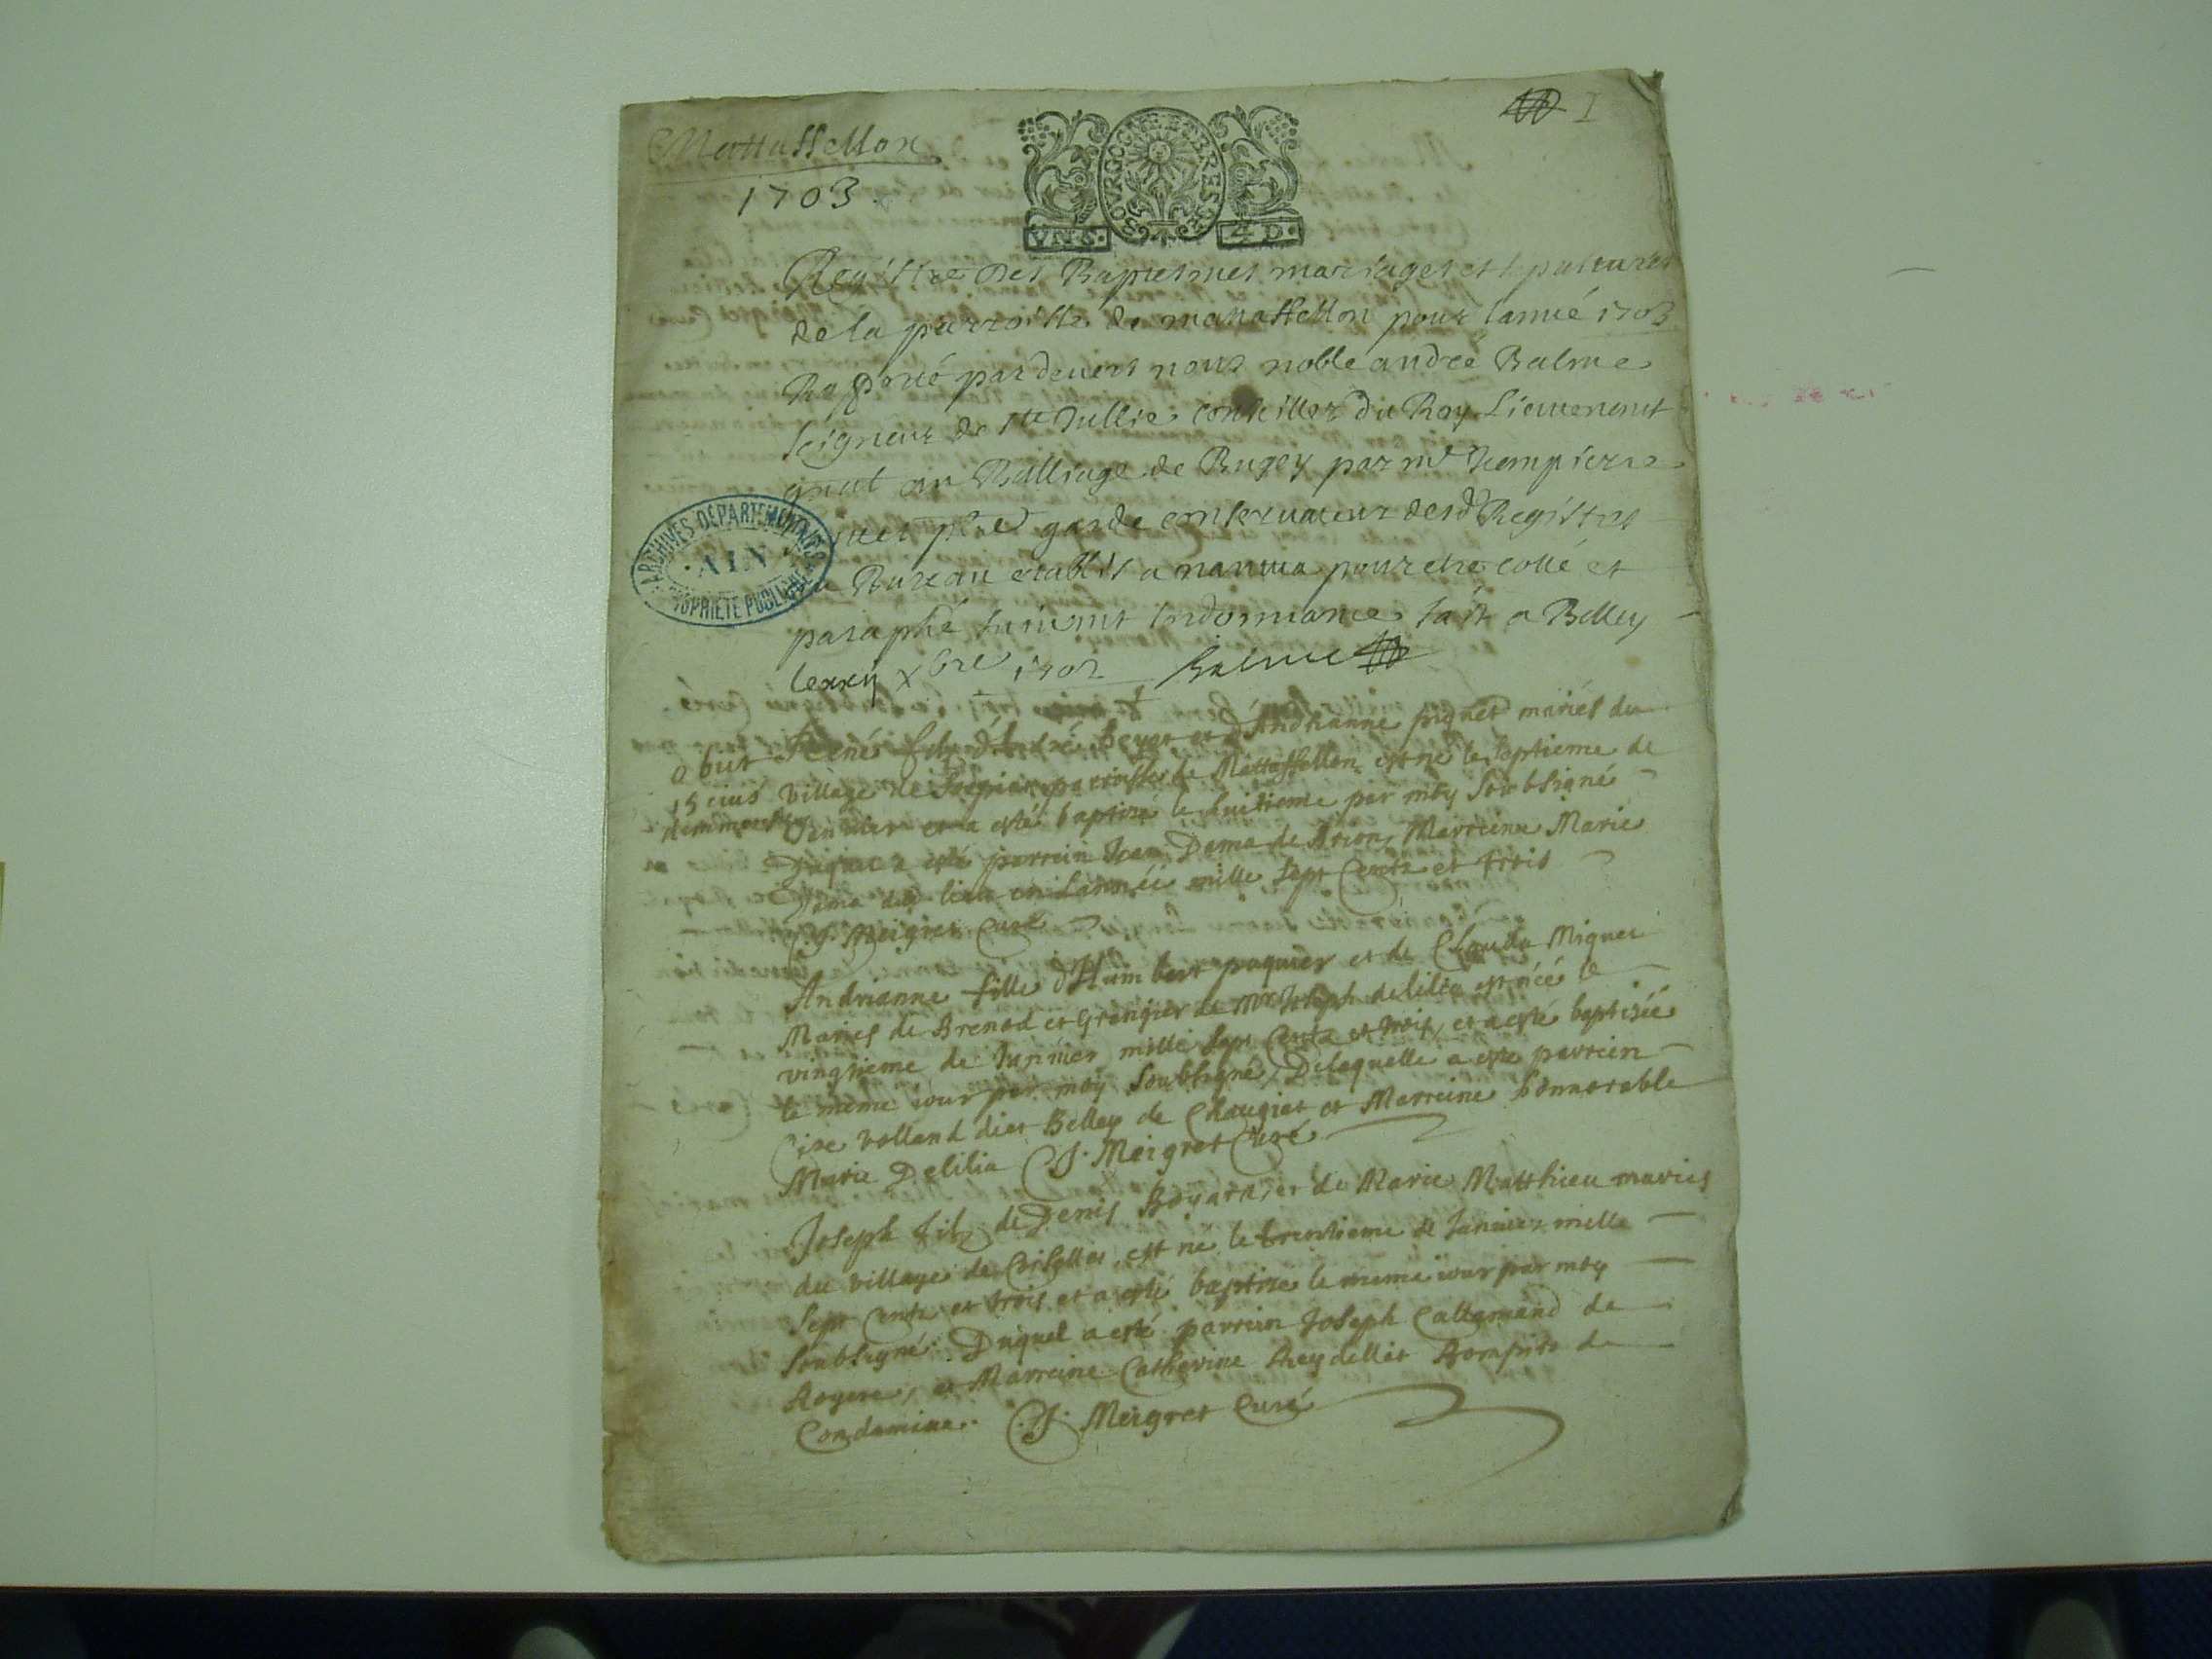 Mattassellon
1703
I
BOURGOGNE BRESSE
VN S. 4 D.
Registre des Baptesmes mariages et sepultures
de la parroisse de mattassellon pour lanné 1703
Raporté pardevers nous noble andré Balme
seigneur de ste Jullie conseiller du Roy Lieutenant
gnal au Balliage de Bugey par me
garde conservateur desd Registres
Bureau etablis a nantua pour etre cotté et
paraphé suivant lordonnance fait a Belley
le xxij xbre 1702 Balme
ARCHIVES DÉPARTEMENTALES
AIN
PROPRIÉTÉ PUBLIQUE
obiit
15 eius
René filz et d'Andrianne piquet mariés du
village de parroisse de Mattassellon est né le septieme de
Janvier et a esté baptisé le huitieme par moy soubsigné
Duquel a esté parrein Jean Dama de Brion, Marreine Marie
Dama dud lieu en l'année mille sept Centz et trois
C. J. Meigret Curé
Andrianne fille d'Humbert paquier et de Clauda Miguet
Mariés de Brenod et Grangier de Mr Joseph delilia est néé le
vingtieme de Janvier mille sept Centz et trois, et a esté baptiséé
le meme iour par moy soubsigné, Delaquelle a esté parrein
Cise volland diet Belley de Chaugiat et Marreine honnorable
Marie Delilia C. J. Meigret Curé
Joseph filz de Denis et de Marie Matthieu mariés
du village de Corcelles, est né le trentieme de Janvier mille
sept Centz et trois et a esté baptize le meme iour par moy
soubsigné. Duquel a esté parrein Joseph Callamand de
Rogere, et Marreine Catherine Reydellet Bompito de
Condamine. C. J. Meigret Curé